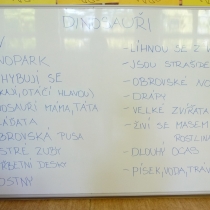 DINOSAUŘI
NOPARK
HYBUJÍ SE
KAJÍ, OTÁČÍ HLAVOU)
NOSAUŘÍ MÁMA, TÁTA
LÁĎATA
OBROVSKÁ PUSA
STRÉ ZUBY
RBETNÍ DESKY
OSTNY
- LÍHNOU SE Z V
- JSOU STRAŠID
- OBROVSKÉ NO
- DRÁPY
- VELKÉ ZVÍŘATA
- ŽIVÍ SE MASEM
ROSTLIN
- DLOUHÝ OCAS
- PÍSEK, VODA, TRÁV